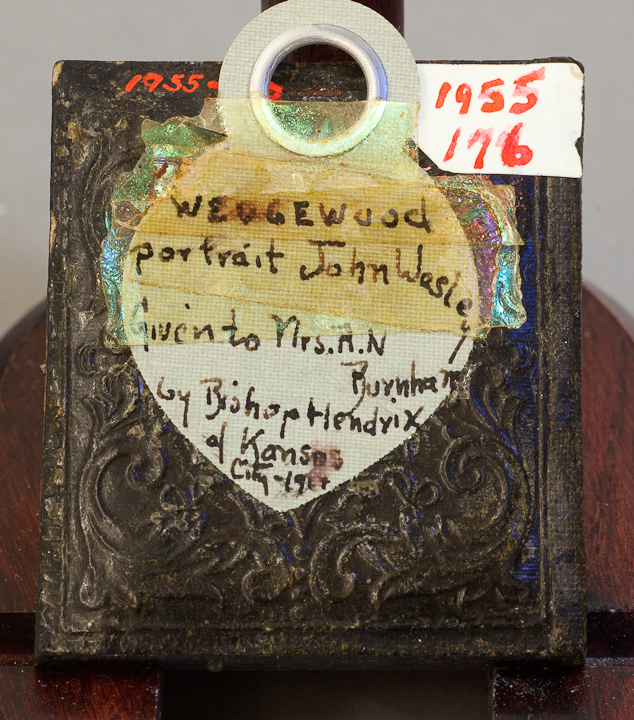 1955
1955
176
WEDGEWOOD
portrait John Wesley
Given to Mrs. A. N
Burnham
by Bishop Hendrix
of Kansas
City -